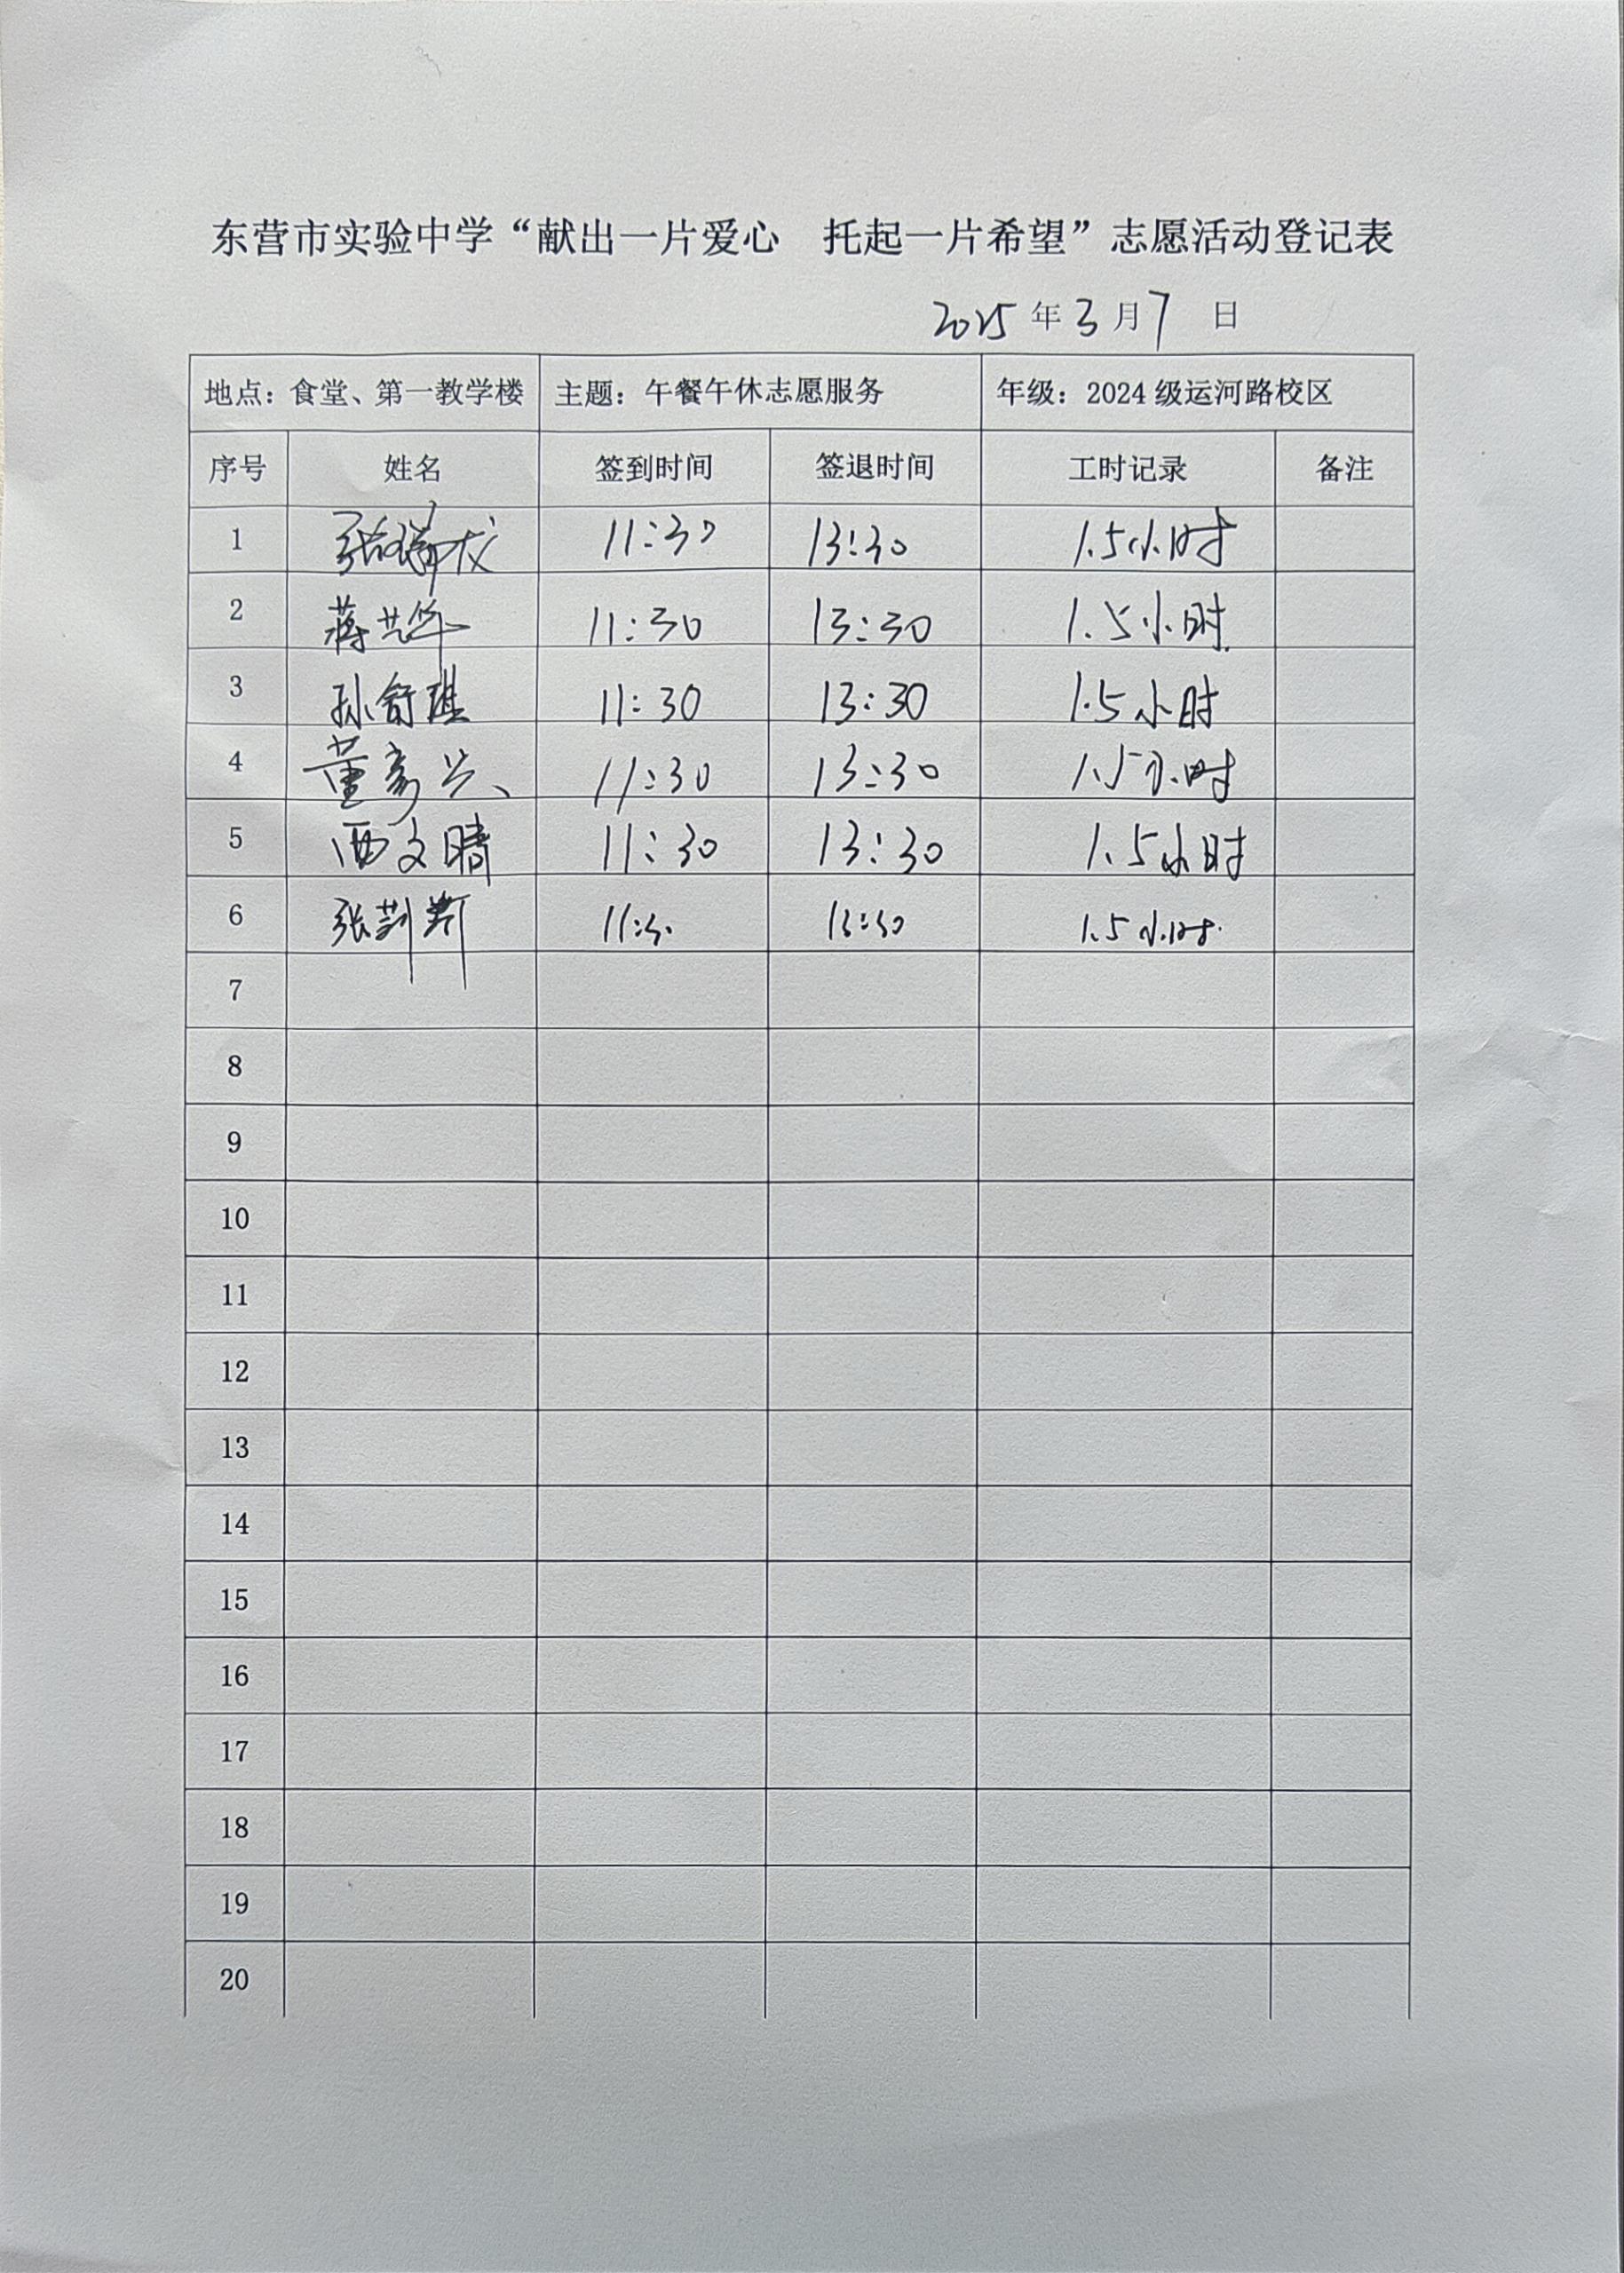 东营市实验中学“献出一片爱心 托起一片希望”志愿活动登记表
2025年3月7日
地点：食堂、第一教学楼 主题：午餐午休志愿服务 年级：2024级运河路校区
序号 姓名 签到时间 签退时间 工时记录 备注
1 11:30 13:30 1.5小时
2 蒋 11:30 13:30 1.5小时
3 孙舒琪 11:30 13:30 1.5小时
4 董 11:30 13:30 1.5小时
5 西文晴 11:30 13:30 1.5小时
6 张 11:30 13:30 1.5小时
7
8
9
10
11
12
13
14
15
16
17
18
19
20